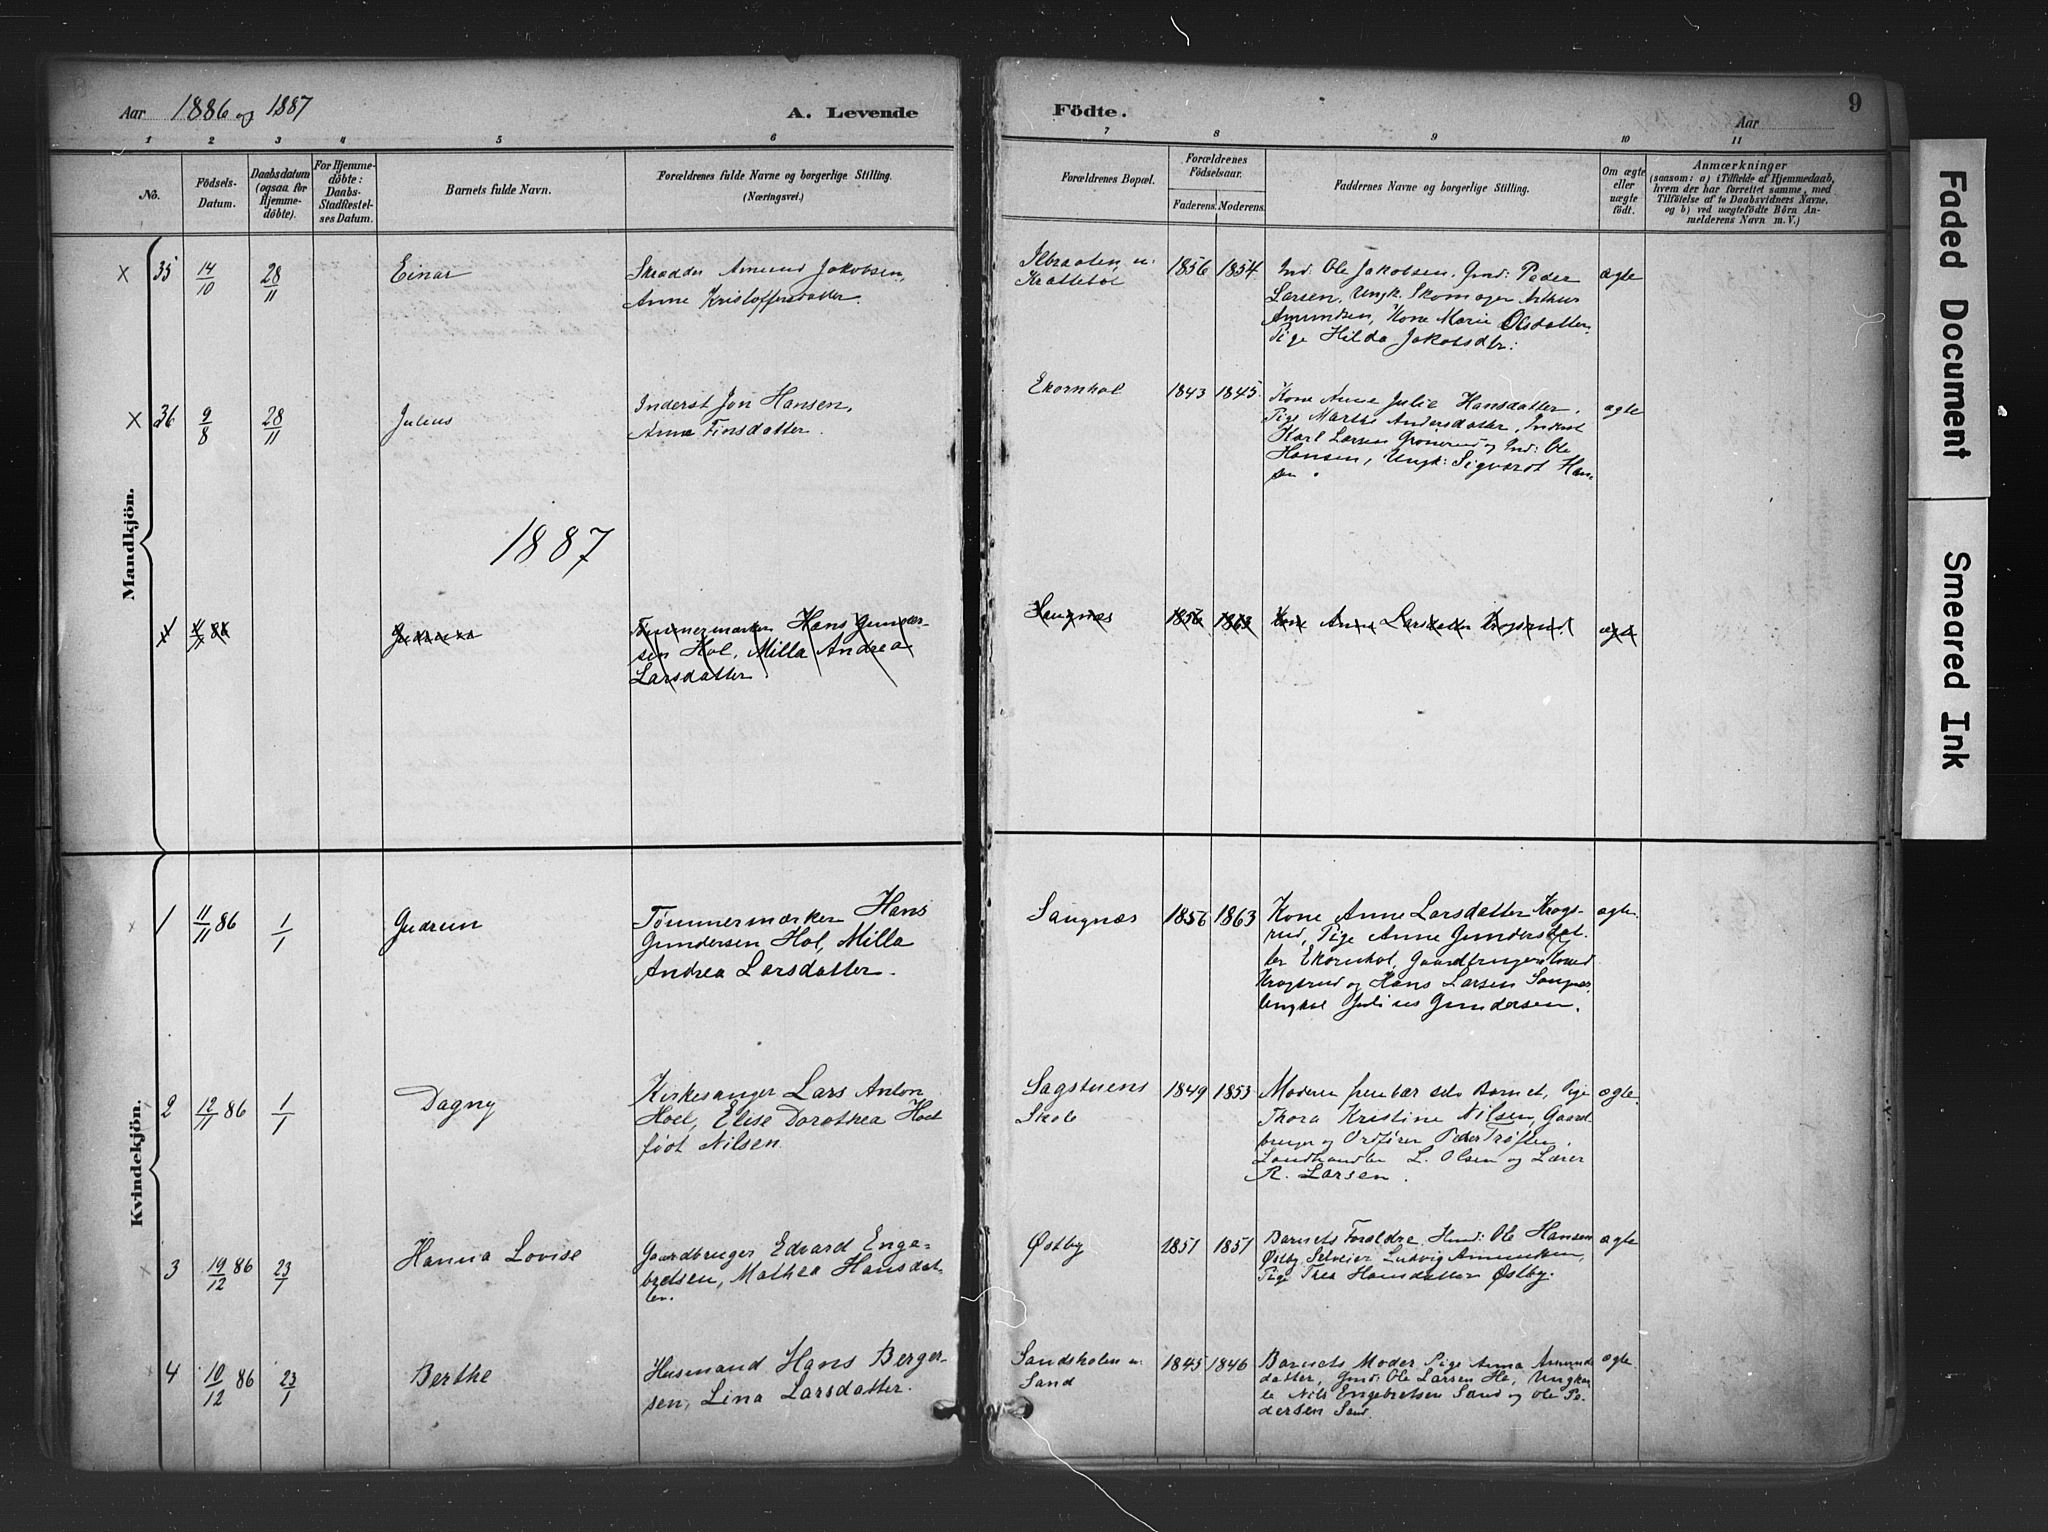 Aar 1886 og 1887
A. Levende
Födte.
Aar
9
1 2 3 4 5 6 7 8 9 10 11
No.
Födsels-
Datum.
Daabsdatum
(ogsaa for
Hjemme-
döbte).
For Hjemme-
döbte:
Daabs-
Stadfestel-
ses Datum.
Barnets fulde Navn.
Forældrenes fulde Navne og borgerlige Stilling.
(Næringsvei.)
Forældrenes Bopæl.
Forældrenes
Födselsaar.
Faderens. Moderens.
Faddernes Navne og borgerlige Stilling.
Om ægte
eller
uægte
födt.
Anmærkninger
(saasom: a) i Tilfælde af Hjemmedaab,
hvem der har forrettet samme, med
Tilföielse af to Daabsvidners Navne,
og b) ved uægtefödte Börn An-
melderens Navn m. V.)
Mandkjön.
x 35 14/10 28/11 Einar
Skrædder Amund Jakobsen,
Anne Kristoffersdatter.
Ilbraaten u:
Krattebøl
1856 1854
Ind: Ole Jakobsen, Gmd: Peder
Larsen, Ungk. Skomager Arthur
Amundsen, Kone Marie Olsdatter,
Pige Hilda Jakobsdtr:
ægte
x 36 9/8 28/11 Julius
Inderst Jon Hansen,
Anne Finsdatter.
Ekornhol
1843 1845
Kone Anne Julie Hansdatter,
Pige Marthe Andersdatter, Inderst
Karl Larsen Gronerud og Ind: Ole
Hansen, Ungk: Sigvardt Han-
sen.
ægte
1887
1 86 Gudrun
Tømmermærker Hans Gunder-
sen Hol, Milla Andrea
Larsdatter.
Saugnæs
1856 1863
Kone Anne Larsdatter Krogsrud
ægte
Kvindekjön.
1 11/11 86 1/1 Gudrun
Tømmermærker Hans
Gundersen Hol, Milla
Andrea Larsdatter.
Saugnæs
1856 1863
Kone Anne Larsdatter Krogs-
rud, Pige Anne Gundersdat-
ter Ekornhol, Gaardbruger
Krogsrud og Hans Larsen Saugnæs,
Ungkar Julius Gundersen.
ægte.
2 12/11 86 1/1 Dagny
Kirkesanger Lars Anton
Hoel, Elise Dorothea Hoel
født Nilsen.
Sagstuens
Skole
1849 1853
Moderen frembær selv Barnet, Pige
Thora Kristine Nilsen, Gaard-
bruger og Ordfører Peder Trøften,
Landhandler L. Olsen og Lærer
R. Larsen.
ægte.
3 19/12 86 23/1 Hanna Lovise
Gaardbruger Edvard Enge-
bretsen, Mathea Hansdat-
ter.
Østby
1851 1851
Barnets Foraldre, Ole Hansen
Østby, Selveier Ludvig Amundsen,
Pige Thea Hansdatter Østby.
ægte
4 10/12 86 23/1 Berthe
Husmand Hans Berger-
sen, Lina Larsdatter.
Sandsholen u:
Sand
1845 1846
Barnets Moder, Pige Anna Amunds-
datter, Gmd: Ole Larsen Ungkar-
le Nils Engebretsen Sand og Ole Pe-
dersen Sand.
ægte
Faded Document
Smeared Ink